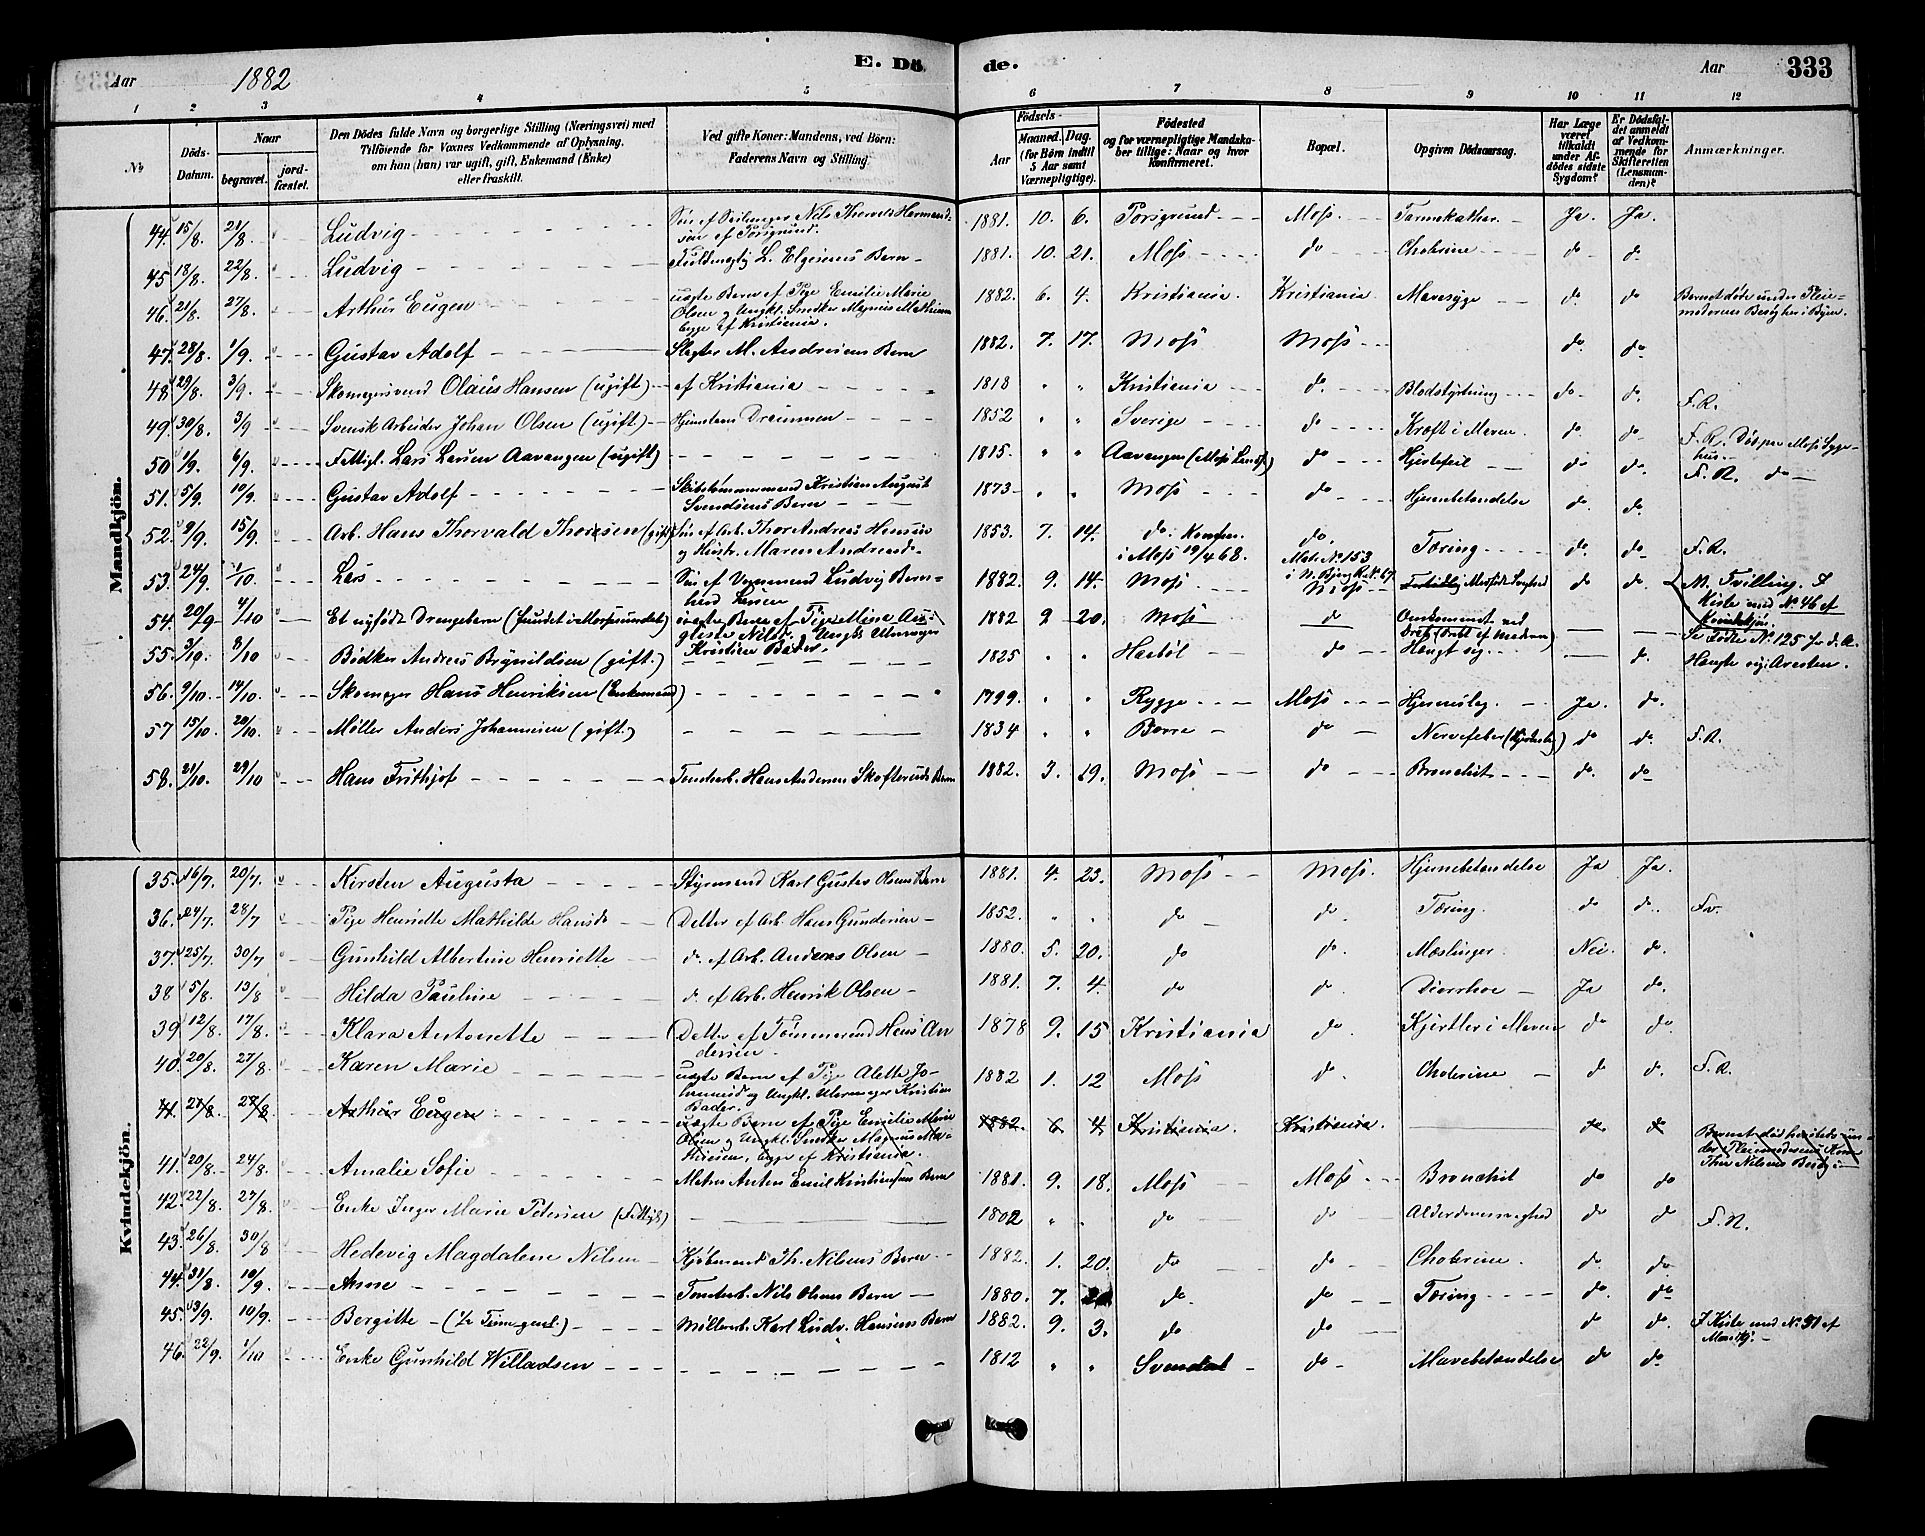 Aar 1882 E. Dö de. Aar 333
1 2 3 4 5 6 7 8 9 10 11 12
No
Döds-Datum.
Naar
begravet. jordfæstet.
Den Dödes fulde Navn og borgerlige Stilling (Næringsvei) med
Tilföiende for Voxnes Vedkommende af Oplysning,
om han (hun) var ugift, gift, Enkemand (Enke)
eller fraskilt.
Ved gifte Koner: Mandens, ved Börn:
Faderens Navn og Stilling.
Födsels-
Aar Maaned. Dag.
(for Børn indtil 5 Aar samt Værnepligtige).
Födested
og for værnepligtige Mandskaber tillige: Naar og hvor Konfirmeret.
Bopæl.
Opgiven Dödsaarsag.
Har Læge været tilkaldt under Afdödes sidste Sygdom?
Er Dödsfaldet anmeldt af Vedkommende for Skifteretten (Lensmanden)?
Anmærkninger.
Mandkjön.
44. 15/8. 21/8. Ludvig Sön af Nils Hermandsön af Porsgrund. 1881. 10. 6. Porsgrund Moss Tarmekathar. Ja. Ja.
45. 18/8. 22/8. Ludvig Fuldmægtig L. Elgesens Barn 1881. 10. 21. Moss do Cholerine do do
46. 21/8. 27/8. Arthur Eugen uægte Barn af Pige Emilie Marie
Olsen og Ungkl. Snedker Magnus Mathiesen
begge af Kristiania. 1882. 6. 4. Kristiania. Kristiania Mavesyge do do Barnet döde under Pleiemoderens Besög her i Byen.
47. 28/8. 1/9. Gustav Adolf Slagter M. Andresens Barn 1882. 7. 17. Moss Moss do. do.
48. 29/8. 3/9. Skomagersvend Olaus Hansen (ugift) af Kristiania 1818 " " Kristiania do. Blodstyrtning do do.
49. 30/8. 3/9 Svensk Arbeider Johan Olsen (ugift.) Drammen 1852 " " Sverige do Kræft i Maven. do. do F.R.
50. 1/9. 6/9. Fattigl. Lars Larsen Aavangen (ugift) 1815. " " Aavangen (Moss Lands.) do Hjertefeil do do. F.R. Död paa Moss Sygehus.
51. 5/9. 10/9. Gustav Adolf Kristian August
Svendsens Barn 1873 " " Moss do Hjernebetændelse do do. F.R. do
52. 9/9. 15/9. Arb. Hans Thorvald Thoresen (gift) Sön af Arb. Thor Andreas Hansen
og Hustr. Maren Andreasd. 1853. 7. 14. do. Konfirm.
i Moss 19/4 68. do. Tæring do. do F.R.
53. 24/9. 1/10. Lars Sön af Ludvig Bernhard Larsen 1882. 9. 14. Moss Matr. No 153
i N. Bjerg R. No. 67
Moss do do M. Tvilling. I
Kiste med No 46 af
Kvindekjön.
54. 20/9 4/10 Et nyfödt Drengebarn uægte Barn af Pige Mina Augusta Nilsd. og Ungk.
Kristian Bader. 1882 9 20. Moss do Omkommet ved
Se Löbe No. 125
55. 3/10. 8/10 Bödker Andreas Brynildsen (gift.) 1825 " " Haaböl do Hængt sig do. Hængte sig i Aresten.
56. 9/10. 14/10. Skomager Hans Henriksen (Enkemand) 1799. " " Rygge Moss Hjerneslag. Ja. do.
57 15/10. 20/10. Möller Anders Johannesen (gift.) 1834 " " Borre do Nervefeber do do. F.R.
58. 21/10. 29/10 Hans Frithjof Tomtearb. Hans Andersen Skofteruds Barn 1882. 3. 19. Moss do Bronchit do. do
Kvindekjön.
35. 16/7. 20/7. Kirsten Augusta Styrmand Karl Gustav Olsens Barn 1881. 4. 23. Moss Moss. Hjernebetændelse Ja Ja.
36. 24/7. 28/7 Pige Henriette Mathilde Hansd. Datter af Arb. Hans Gundersen 1852. " " do do. Tæring. do do. Fr.
37. 25/7. 30/7 Gunhild Albertine Henriette d. af Arb. Anders Olsen 1880. 5. 20. do do. Mæslinger. Nei. do.
38 5/8. 13/8 Hilda Pauline d. af Arb. Henrik Olsen 1881. 7. 4. do do. Diarrhoe Ja do.
39 12/8. 17/8. Klara Antonette Datter af Tömmermand Hans Andersen. 1878 9. 15 Kristiania do. Kjertler i Maven do do.
40. 20/8. 27/8. Karen Marie uægte Barn af Pige Alette Johannesd og Ungkl. Urmager Kristian
Bader. 1882 1. 12 Moss do. Cholerine do do. F.R.
41. 21/8. 27/8 Arthur Eugen uægte Barn af Pige Emilie Marie
Olsen og Ungkl. Snedker Magnus Mathiesen, begge af Kristiania. 1882. 6 4. Kristiania. Kristiania. do do
41. 20/8 24/8. Amalie Sofie Matros Anton Emil Kristiansens Barn 1881. 9. 18. Moss Moss Bronchit do do
42. 22/8. 27/8. Enke Inger Marie Petersen (Fattigl) 1802 " " do do Alderdomssvaghed do do F.R.
43. 26/8. 30/8 Hedevig Magdalene Nilsen Kjöbmand Th. Nilsens Barn 1882. 1. 20. do do Cholerine. do. do
44. 31/8. 10/9. Anne Tomtearb. Nils Olsens Barn 1880. 7. do. do Tæring do. do
45. 3/9. 10/9. Bergitte (1/2 Time gml.) Möllerarb. Karl Ludv. Hansens Barn 1882. 9. 3. do do do do. I Kiste med No. 51 af
Mandkj.
46. 22/9. 1/10 Enke Gunhild Willadsen 1812 " " do Mavebetændelse do do.